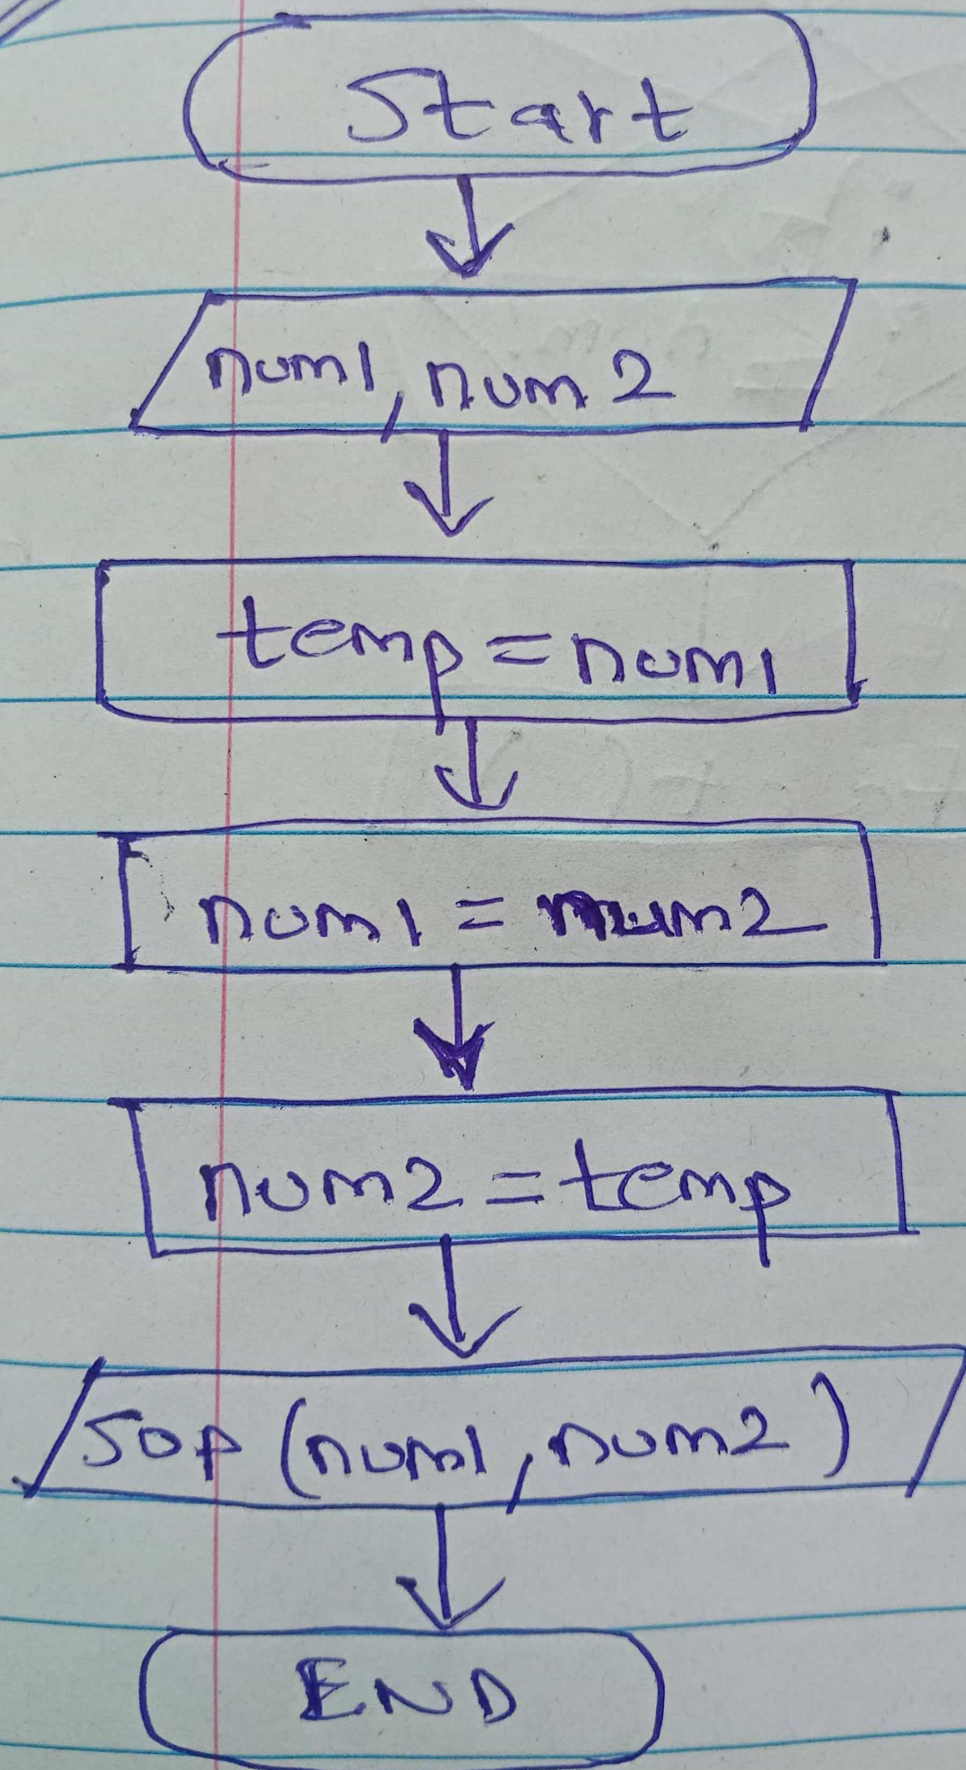 Start
num1, num2
temp = num1
num1 = num2
num2 = temp
sop (num1, num2)
END